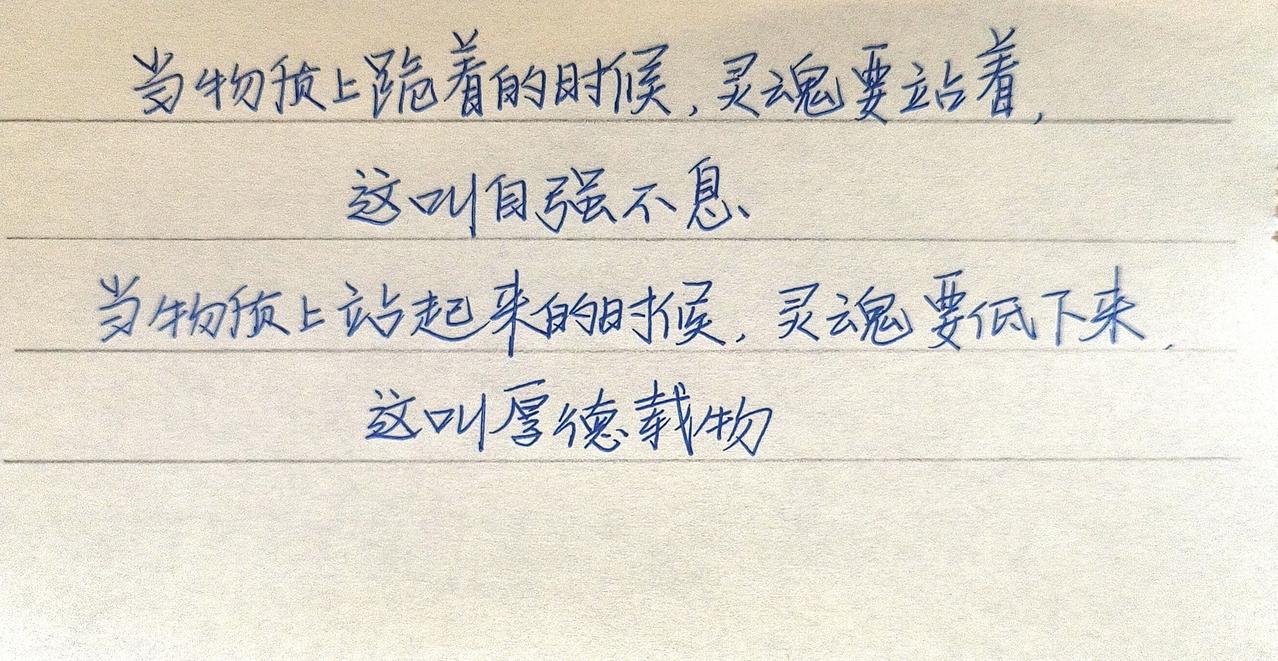 当物质上跪着的时候,灵魂要站着,
这叫自强不息、
当物质上站起来的时候,灵魂要低下来,
这叫厚德载物